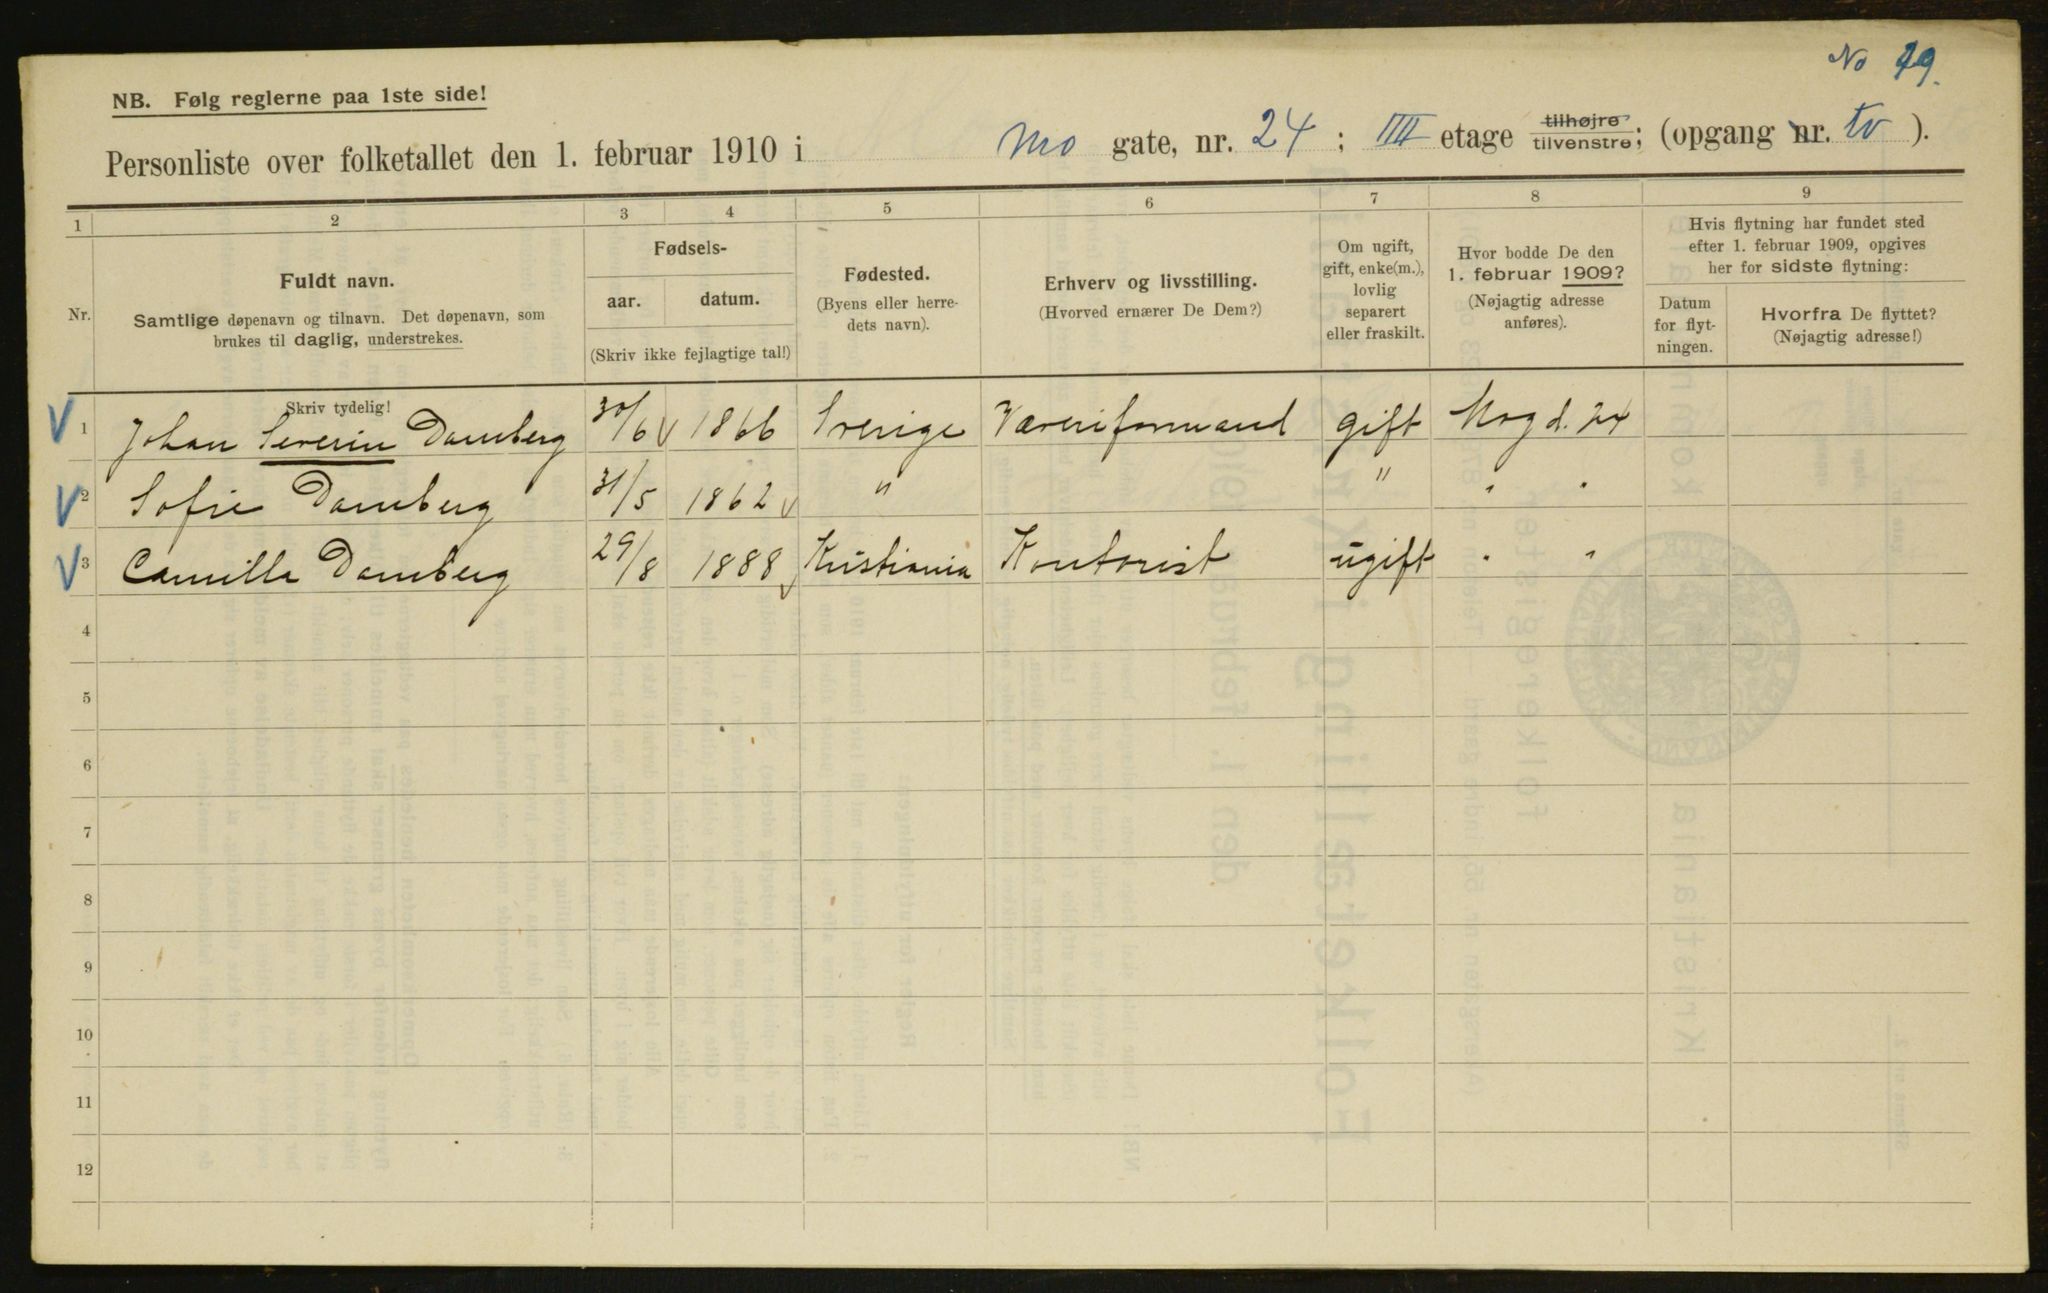 No 29.
NB. Følg reglerne paa 1ste side!
Personliste over folketallet den 1. februar 1910 i Mo gate, nr. 24 ; IIII etage tilhøjre tilvenstre; (opgang nr. tv ).
1 2 3 4 5 6 7 8 9
Nr.
Fuldt navn.
Samtlige døpenavn og tilnavn. Det døpenavn, som
brukes til daglig, understrekes.
Fødsels-
aar. datum.
(Skriv ikke fejlagtige tal!)
Fødested.
(Byens eller herre-
dets navn).
Erhverv og livsstilling.
(Hvorved ernærer De Dem?)
Om ugift,
gift, enke(m.),
lovlig
separert
eller fraskilt.
Hvor bodde De den
1. februar 1909?
(Nøjagtig adresse
anføres).
Hvis flytning har fundet sted
efter 1. februar 1909, opgives
her for sidste flytning:
Datum
for flyt-
ningen.
Hvorfra De flyttet?
(Nøjagtig adresse!)
Skriv tydelig!
V 1 Johan Severin Damberg 30/6 V 1866 Sverige Væveriformand gift Mogd. 24
V 2 Sofie Damberg 31/5 1862 V " " " "
V 3 Camilla Damberg 29/8 1888 V Kristiania Kontorist ugift " "
4
5
6
7
8
9
10
11
12